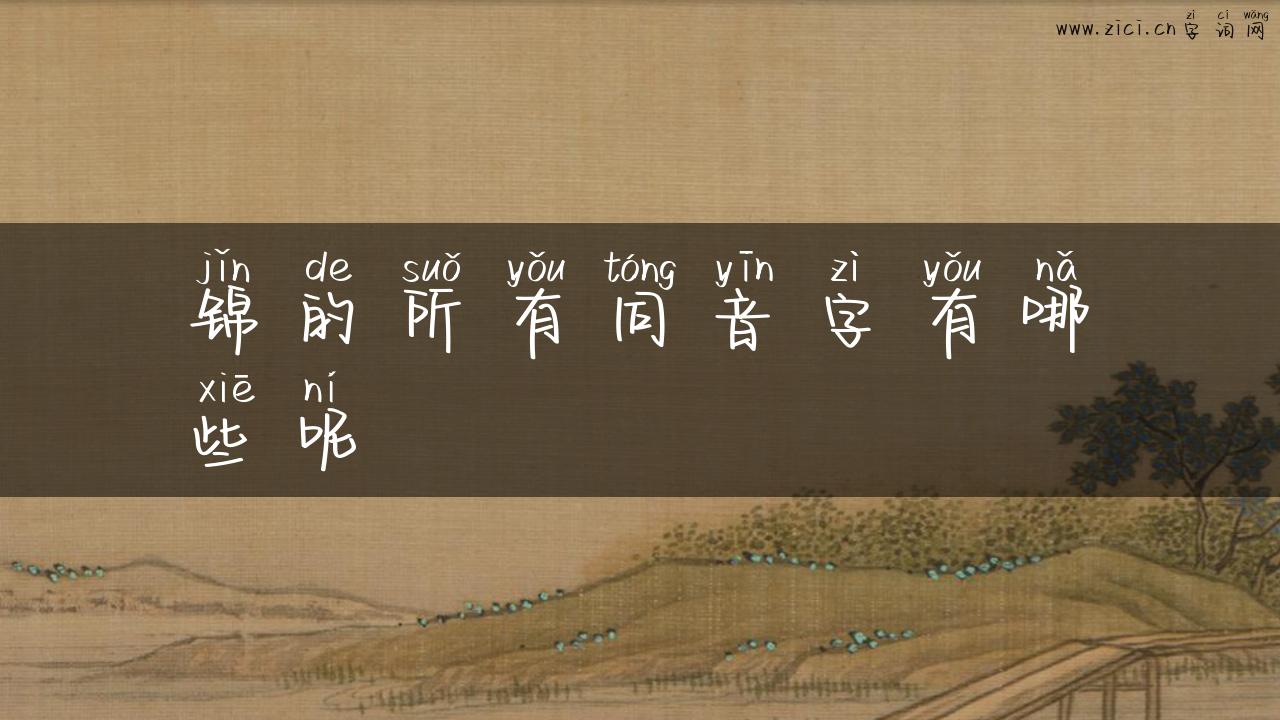 zì cí wǎng
www.zici.cn字词网
jǐn de suǒ yǒu tóng yīn zì yǒu nǎ
锦的所有同音字有哪
xiē ní
些呢